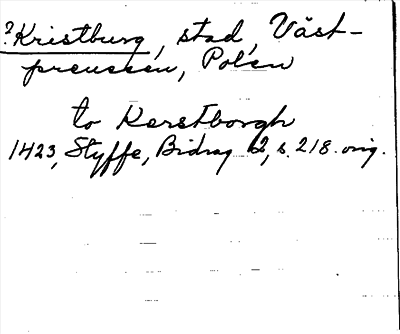 ?Kristburg, stad, Väst-
preussen, Polen
to Kerstborgh
1423, Styffe, Bidrag 2, s. 218. orig.